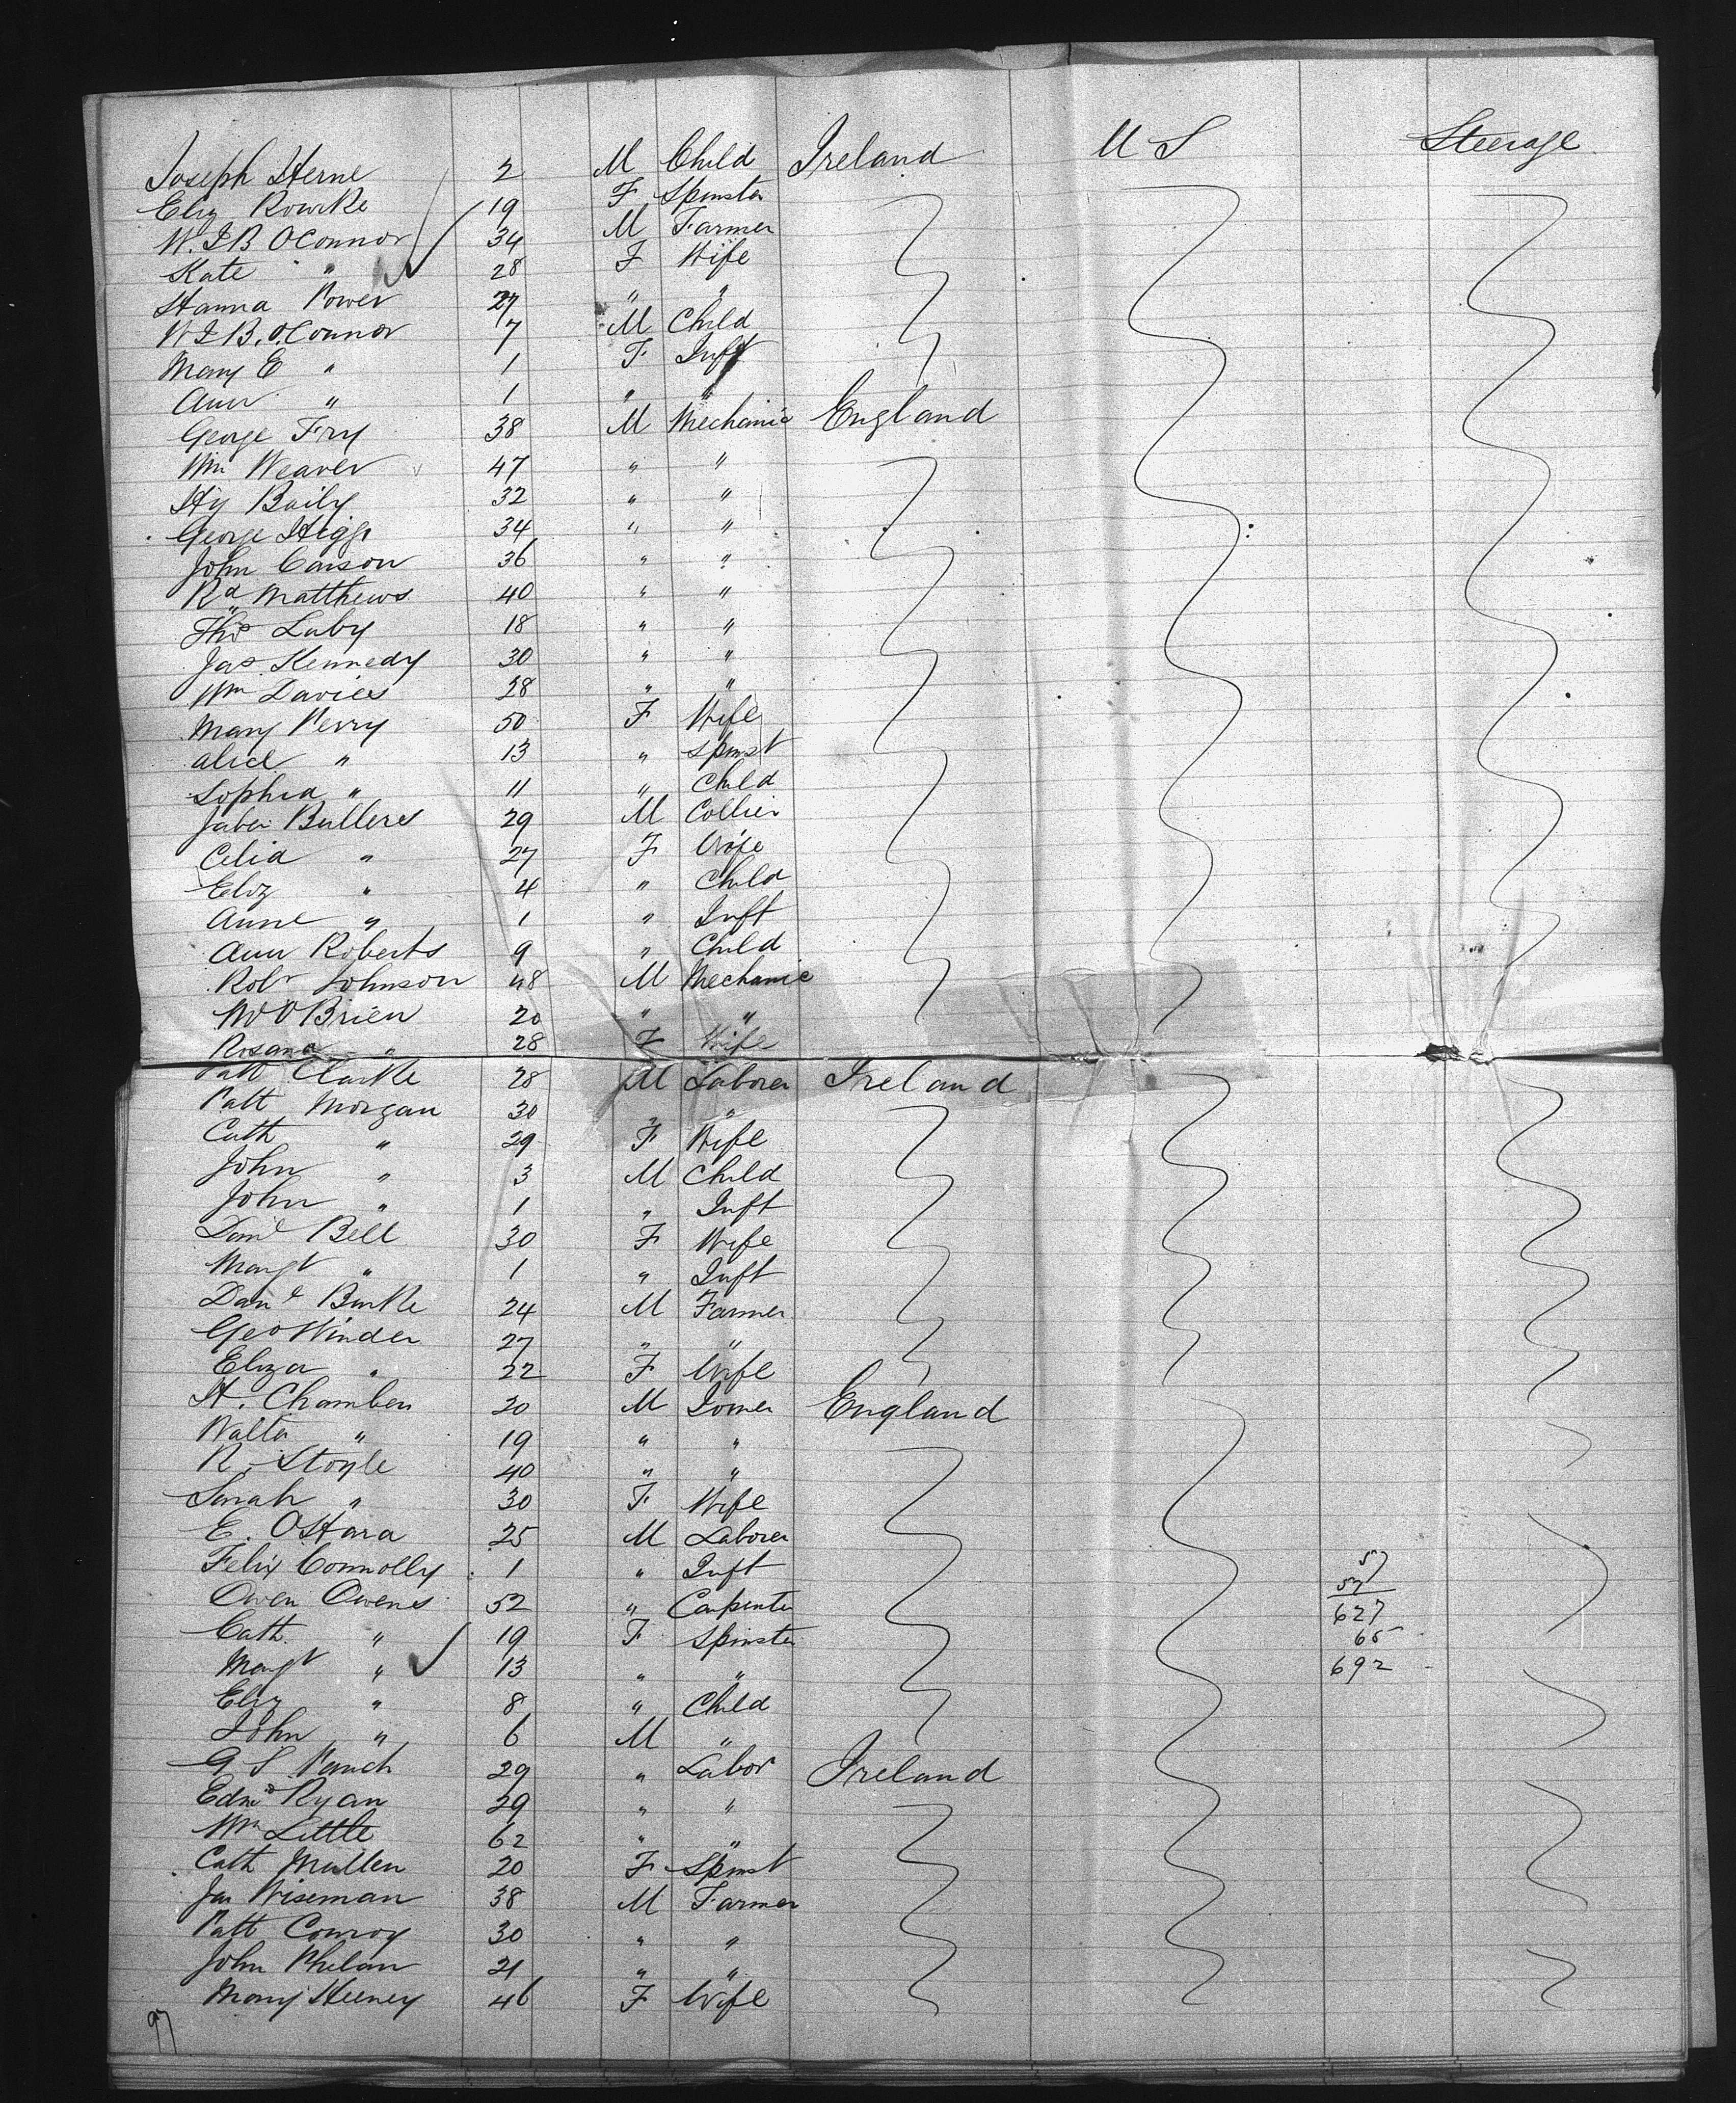 Joseph Herne 2 M Child Ireland U S Steerage
Eliz Rourke 19 F Spinster
W. J B OConnor 34 M Farmer
Kate " 28 F Wife
Hanna Power 27 " "
W J B. O'Connor 7 M Child
Mary E " 1 F Inft
Ann " 1 " "
George Fry 38 M Mechanic England
Wm Weaver 47 " "
Hy Baily 32 " "
George Higgs 34 " "
John Carson 36 " "
Rd Matthews 40 " "
Thos Luby 18 " "
Jas Kennedy 30 " "
Wm Davies 28 " "
Mary Perry 50 F Wife
Alice " 13 " Spinst
Sophia " 11 " Child
Jabez Bullers 29 M Collier
Celia " 27 F Wife
Eliz " 4 " Child
Anne " 1 " Inft
Ann Roberts 9 " Child
Robt Johnson 48 M Mechanic
O'Brien 20 " "
Rosana " 28 F Wife
Patt Clarke 28 M Laborer Ireland
Patt Morgan 30 " "
Cath " 29 F Wife
John " 3 M Child
John " 1 " Inft
Danl Bell 30 F Wife
Margt " 1 " Inft
Danl Burke 24 M Farmer
Geo Winder 27 " "
Eliza " 22 F Wife
H. Chambers 20 M Joiner England
Walter " 19 " "
R. Stoyle 40 " "
Sarah " 30 F Wife
E. OHara 25 M Laborer
Felix Connolly 1 " Inft 57
Owen Owens 52 " Carpenter 57
627
Cath " 19 F Spinster 65
Margt " 13 " " 692
Eliz " 8 " Child
John " 6 M "
G S 29 " Labor Ireland
Edmd Ryan 29 " "
Wm Little 62 " "
Cath Mullen 20 F Spinst
Jas Wiseman 38 M Farmer
Patt Conroy 30 " "
John Phelan 21 " "
Mary Heeney 46 F Wife
97